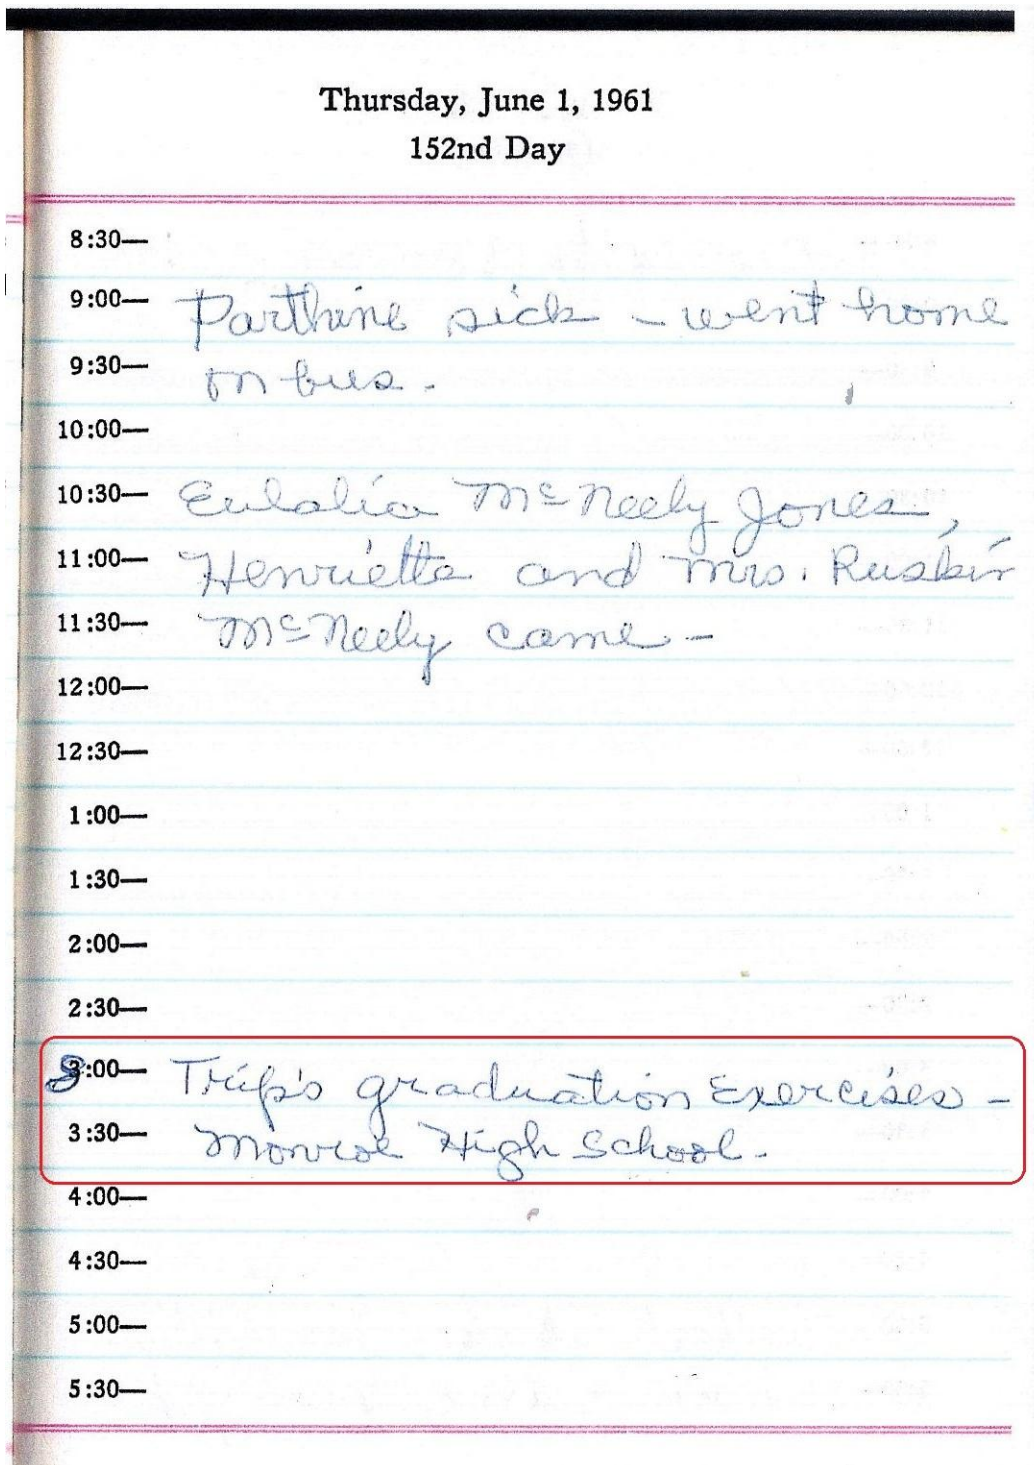 Thursday, June 1, 1961
152nd Day
8:30—
9:00— Parthine sick - went home
9:30— on bus.
10:00—
10:30— Eulalia McNeely Jones,
11:00— Henrietta and Mrs. Ruskin
11:30— McNeely came -
12:00—
12:30—
1:00—
1:30—
2:00—
2:30—
8:00— Trip's graduation Exercises -
3:30— Monroe High School.
4:00—
4:30—
5:00—
5:30—